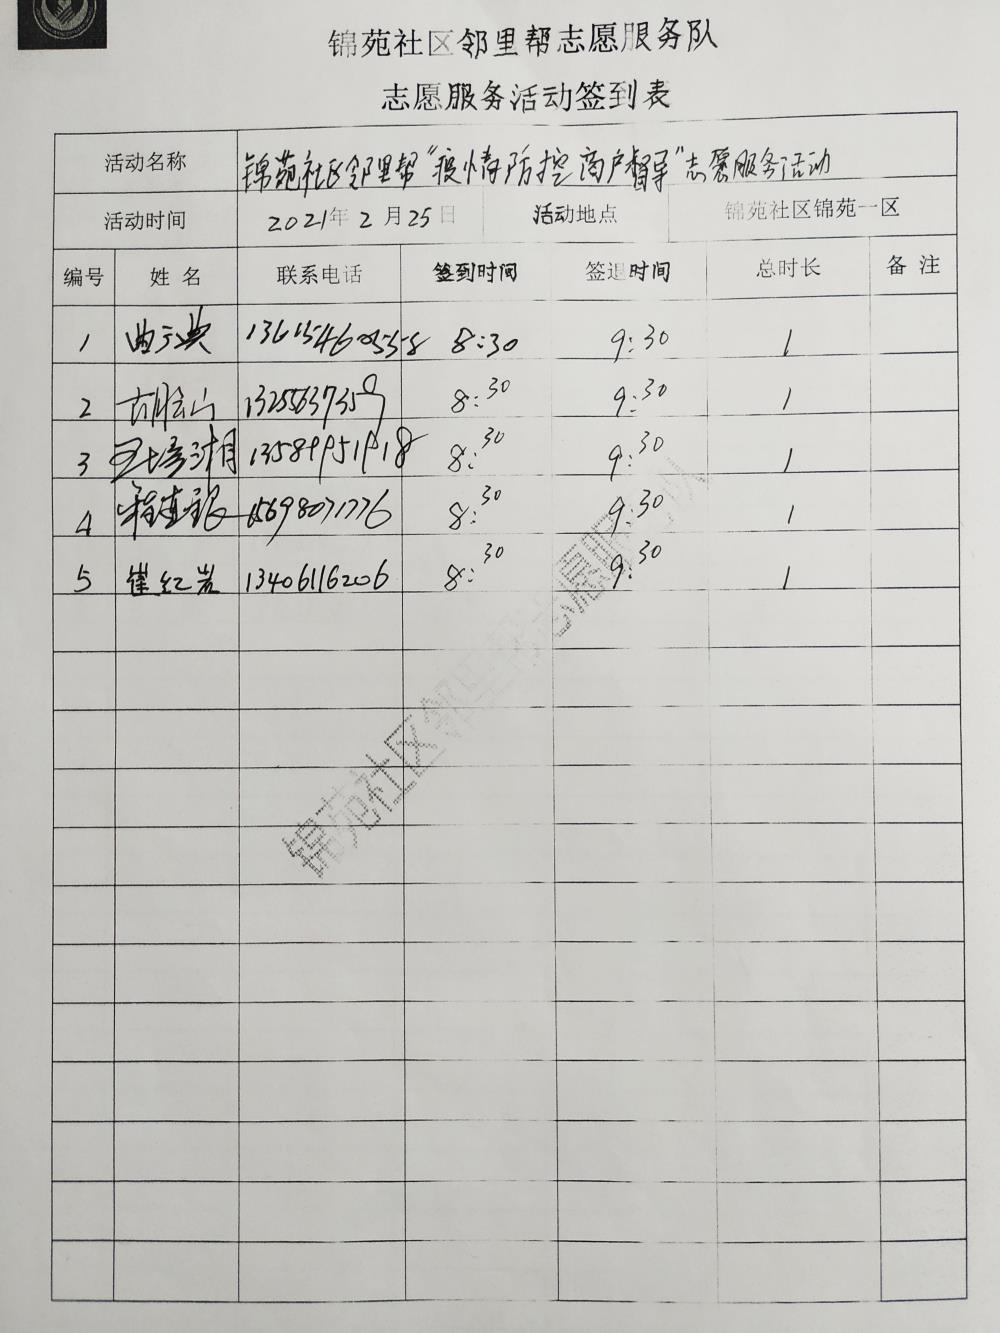 锦苑社区邻里帮志愿服务队
志愿服务活动签到表
活动名称 锦苑社区邻里帮“疫情防控商户督导”志愿服务活动
活动时间 2021年2月25日 活动地点 锦苑社区锦苑一区
编号 姓名 联系电话 签到时间 签退时间 总时长 备注
1 曲 8:30 9:30 1
2 胡 山 13255637359 8:30 9:30 1
3 13589951918 8:30 9:30 1
4 15698071776 8:30 9:30 1
5 崔红岩 13406116206 8:30 9:30 1
锦苑社区邻里帮志愿服务队